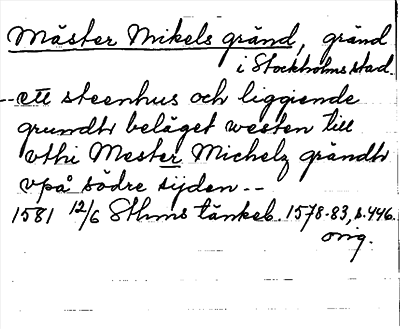 Mäster Mikels gränd, gränd
i Stockholms stad.
-- ett steenhus och liggiende
grundtv beläget westen till
vthi Mester Michelz grändtv
vpå södre sijden --
1581 12/6 Sthms tänkeb. 1578-83, s. 446.
orig.